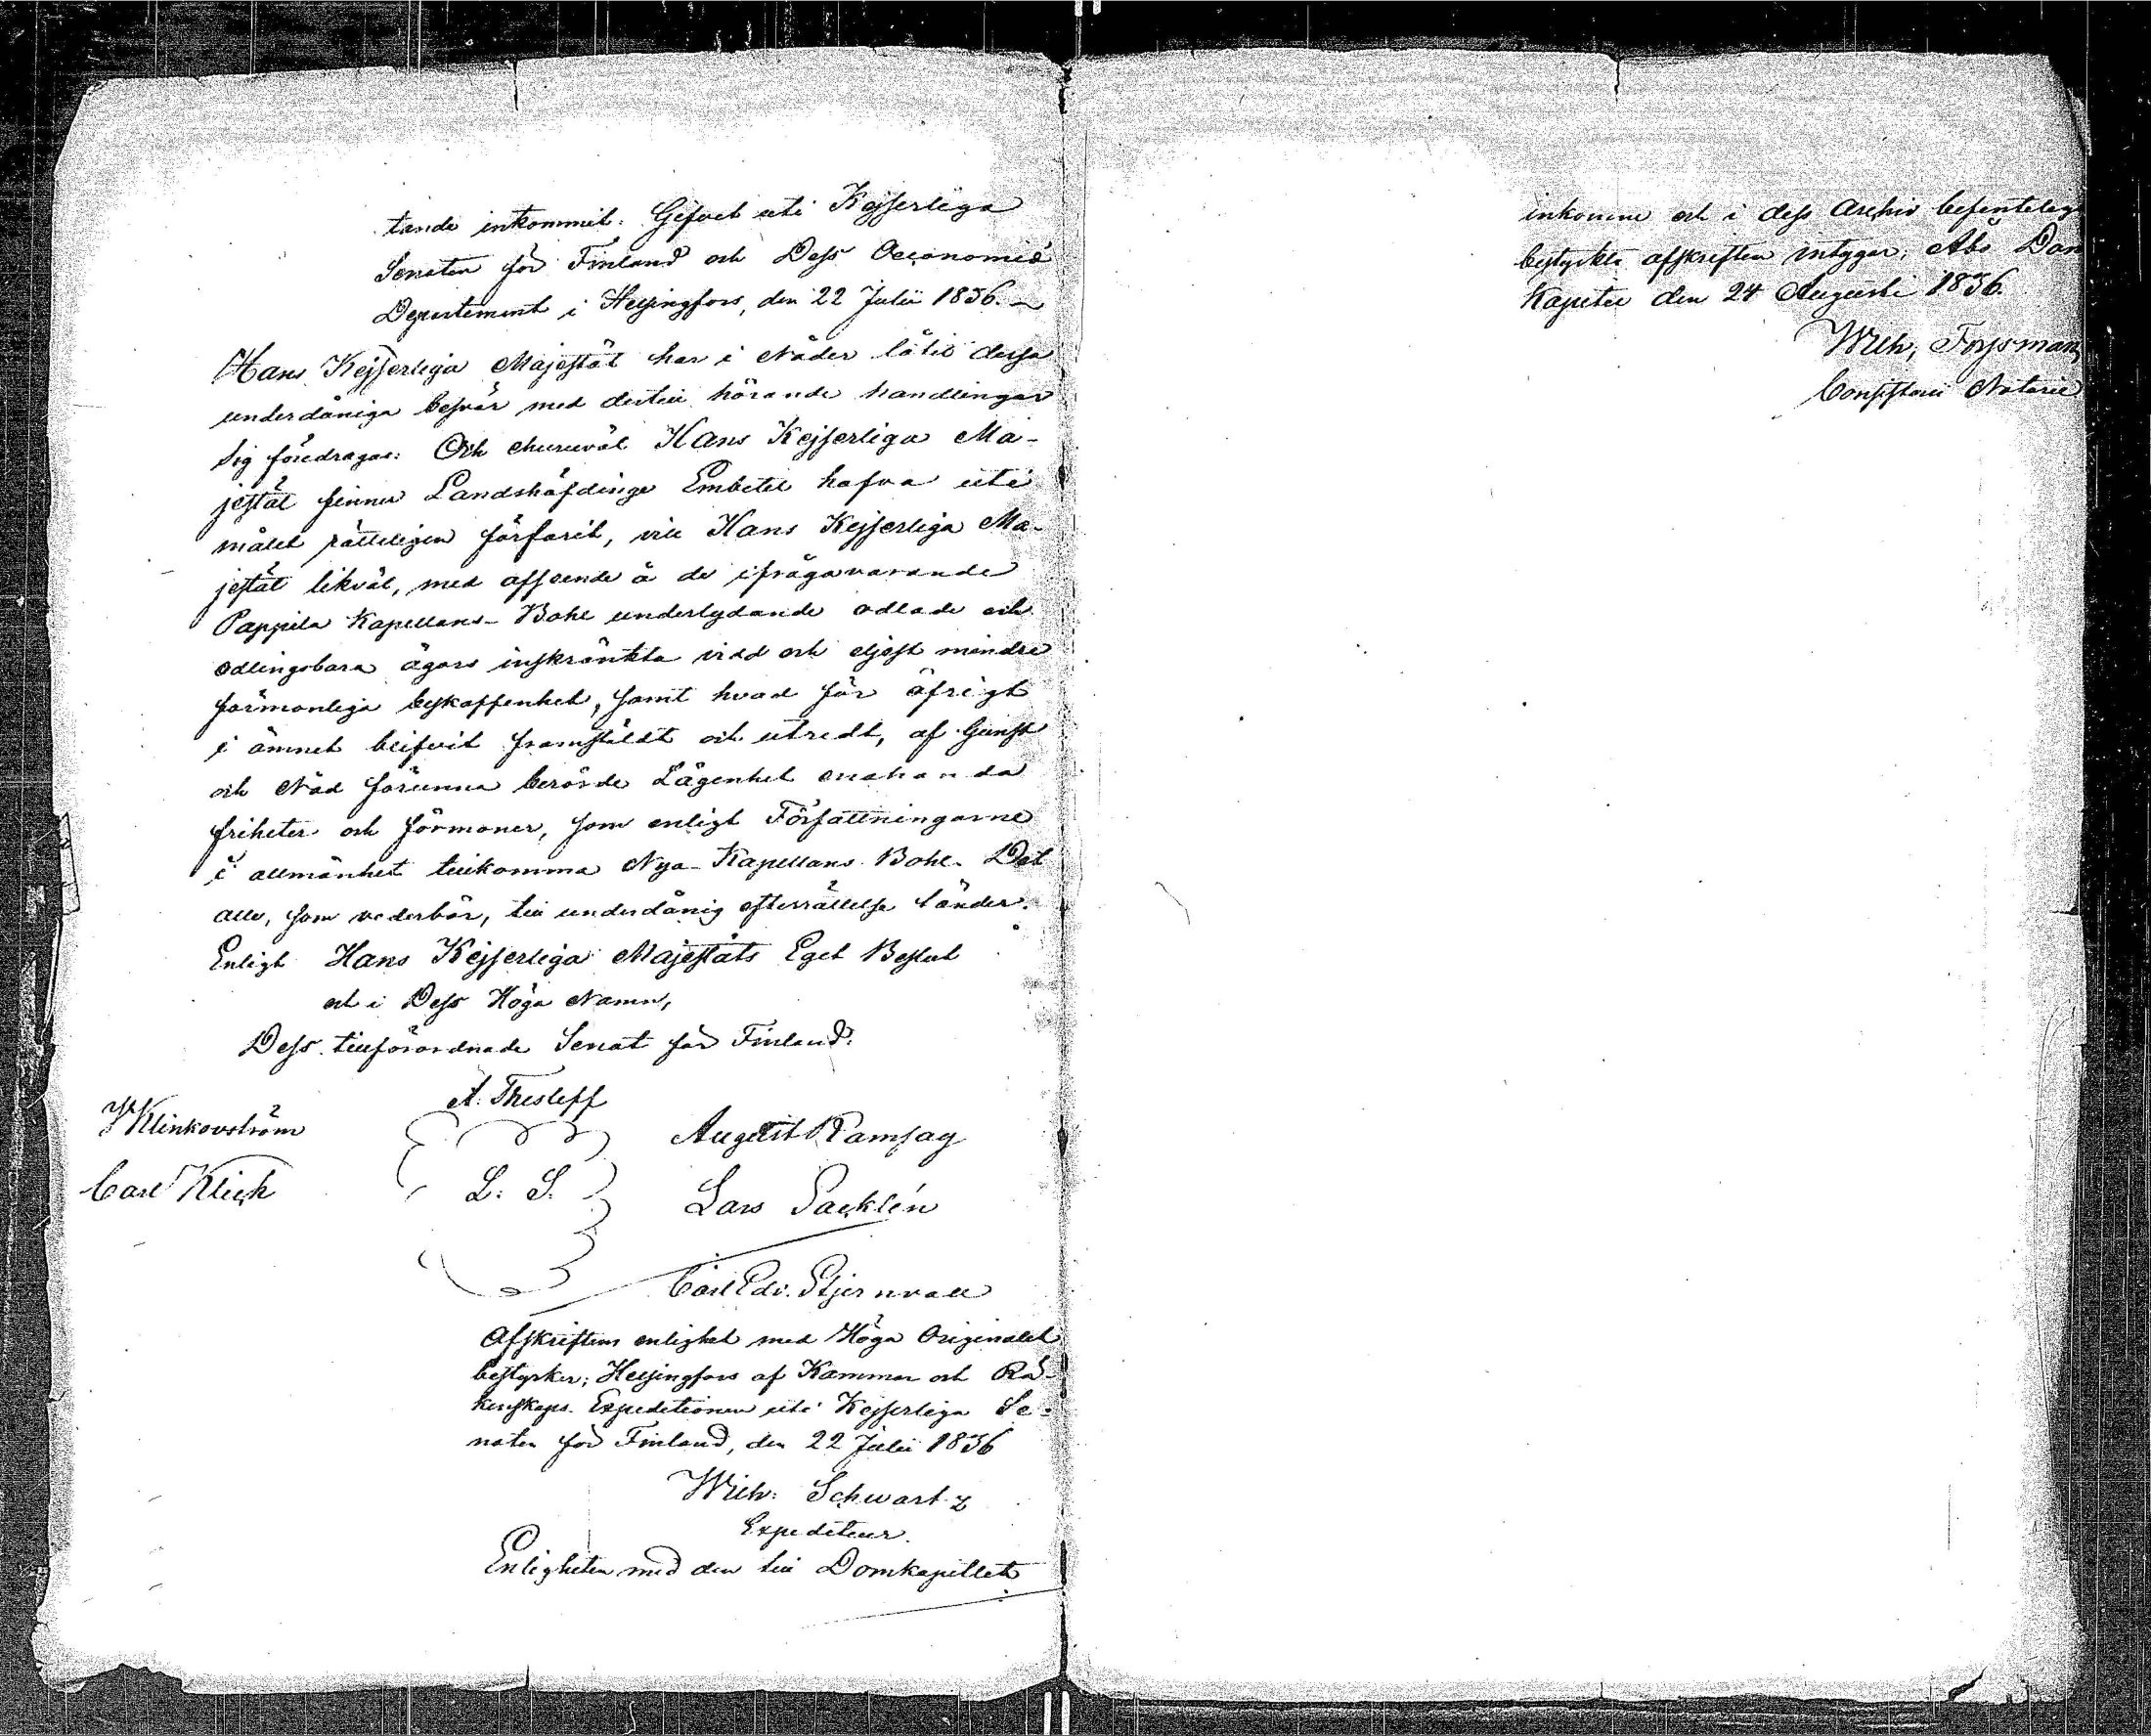 tande inkommit. Gifvet uti Kejserliga
Senaten för Finland och Dess Oeconomiæ
Departement i Helsingfors, den 22 Julii 1836.
Hans Kejserliga Majestät har i Nåder låtit dessa
underdåniga besvär med dertill hörande handlingar
Sig föredragas: Och ehuruväl Hans Kejserliga Ma-
jestät finner Landshöfdinge Embetet hafva uti
målet rätteligen förfarit, vill Hans Kejserliga Ma-
jestät likväl, med afseende å de ifrågavarande
Pappila Kapellans-Bohl underlydande odlade och
odlingsbara ägors inskränkta vidd och eljest mindre
förmonliga beskaffenhet, samt hvad för öfrigt
i ämnet blifvit framstäldt och utredt, af Gunst
och Nåd förunna berörde Lägenhet enahanda
friheter och förmoner, som enligt Författningarne
i allmänhet tillkomma Nya Kapellans Bohl. Det
alle, som vederbör, till underdånig efterrättelse länder.
Enligt Hans Kejserliga Majestäts Eget Beslut
och i Dess Höga Namn,
Dess tillförordnade Senat för Finland:
A. Thesleff
Klinkovström
August Ramsay
Carl Klick
L. S.
Lars Sacklén
Carl Edv. Stjernvall
Afskriftens enlighet med Höga Originalet
bestyrker; Helsingfors af Kammar och Rä-
kenskaps Expeditionen uti Kejserliga Se-
naten för Finland, den 22 Julii 1836
Wilh: Schwartz
Expediteur.
Enligheten med den till Domkapitlet
inkomne och i dess Archiv befintelig
bestyrkta afskriften intygar; Åbo Dom
Kapitel den 24 Augusti 1836.
Wilh, Forssman,
Consistorii Notarie